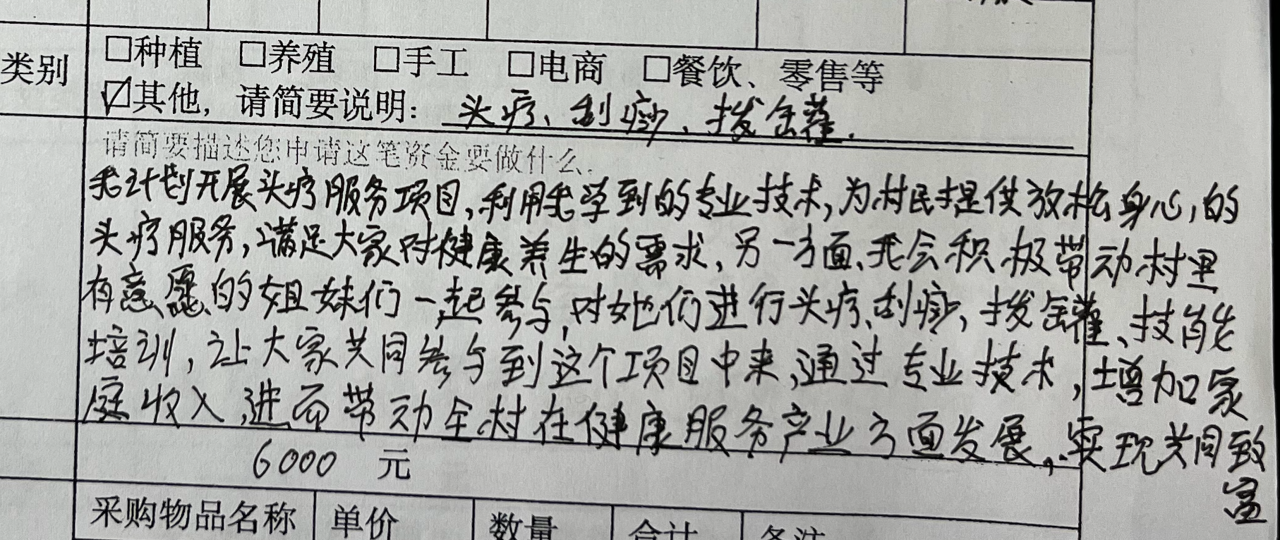 □种植 □养殖 □手工 □电商 □餐饮、零售等
类别
☑其他，请简要说明：头疗、刮痧、拨罐.
请简要描述您申请这笔资金要做什么.
我计划开展头疗服务项目,利用我学到的专业技术,为村民提供放松身心,的
头疗服务,满足大家对健康养生的需求,另一方面,我会积极带动村里
有意愿的姐妹们一起参与,对她们进行头疗、刮痧、拨罐、技能
培训,让大家共同参与到这个项目中来,通过专业技术,增加家
庭收入,进而带动全村在健康服务产业方面发展,实现共同致
富
6000 元
采购物品名称 单价 数量 合计 备注